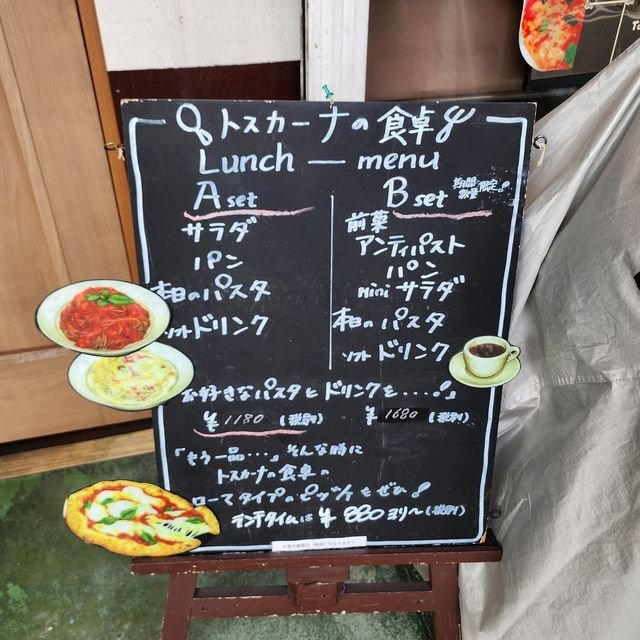 トスカーナの食卓
Lunch — menu
A set
サラダ
パン
本日のパスタ
ソフトドリンク
B set
期間限定!
前菜
アンティパスト
パン
mini サラダ
本日の パスタ
ソフト ドリンク
お好きなパスタとドリンクを....!」
¥1180 (税別)
¥1680 (税別)
「もう一品...」そんな時に
トスカーナの食卓の
ローマタイプのピッツァもぜひ!
¥880ヨリ〜(税別)